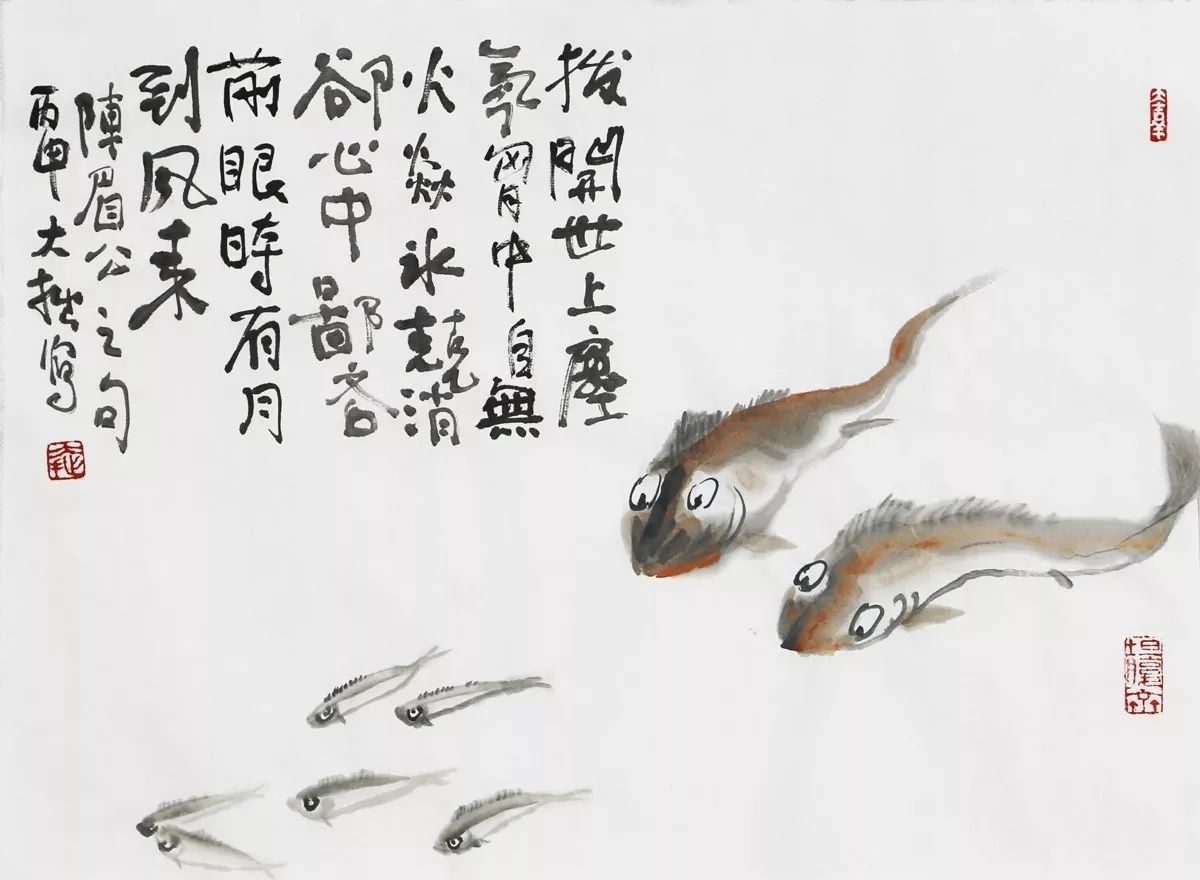 大吉羊
拨開世上塵
氛胷中自無
火焱氷兢消
卻心中鄙吝
前眼時有月
到風来
陳眉公之句
丙申大拙寫